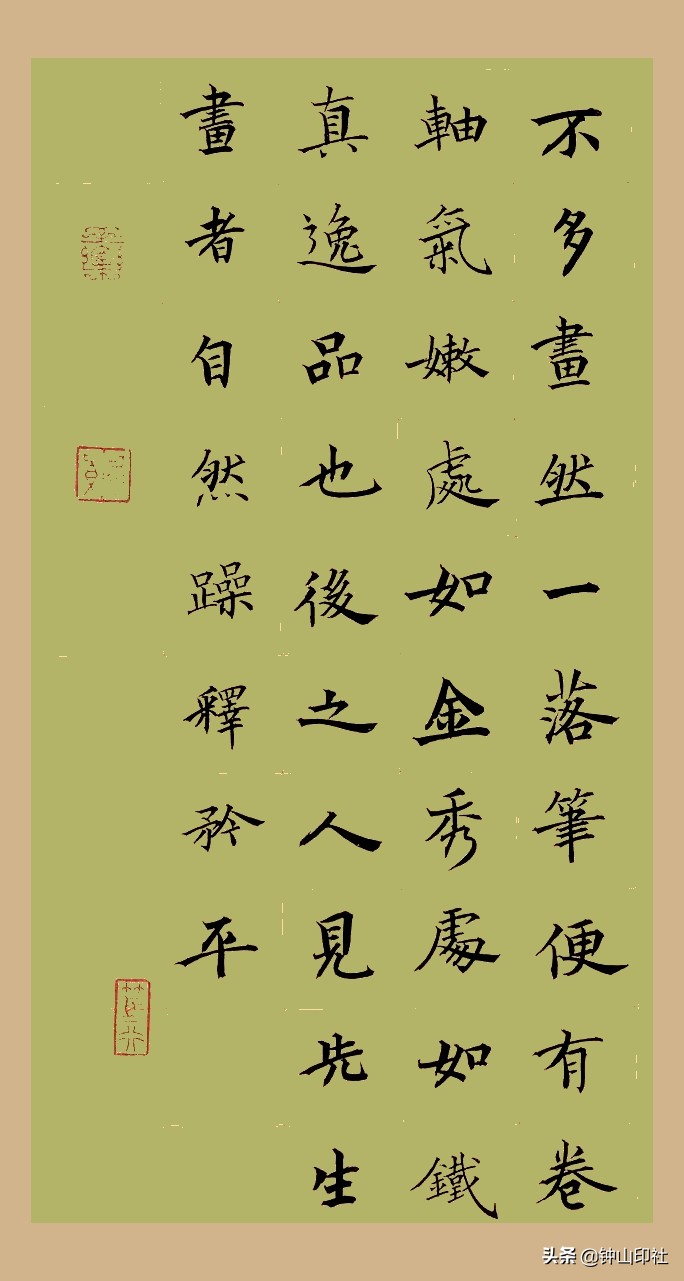 不多畫然一落筆便有卷
軸氣嫩處如金秀處如鐵
真逸品也後之人見先生
畫者自然躁釋矜平
头条 @钟山印社